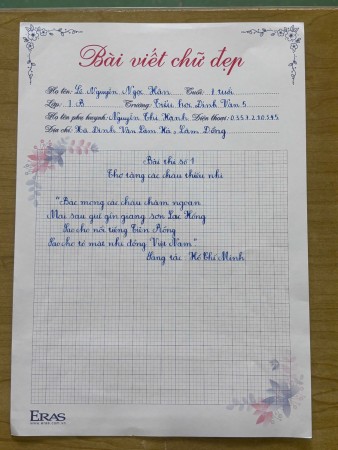 Bài viết chữ đẹp
Họ tên: Lê Nguyễn Ngọc Hân Tuổi: 7 tuổi
Lớp: 1B Trường: Tiểu học Đinh Văn 5
Họ tên phụ huynh: Nguyễn Thị Hạnh Điện thoại:
Địa chỉ: Hà Đinh Văn Lâm Hà, Lâm Đồng
Bài thi số 1
Thơ tặng các cháu thiếu nhi
"Bác mong các cháu chăm ngoan
Mai sau giữ gìn giang sơn Lạc Hồng
Sao cho nổi tiếng Tiên Rồng
Sao cho tỏ mặt nhi đồng Việt Nam"
Sáng tác: Hồ Chí Minh
ERAS
www.eras.com.vn